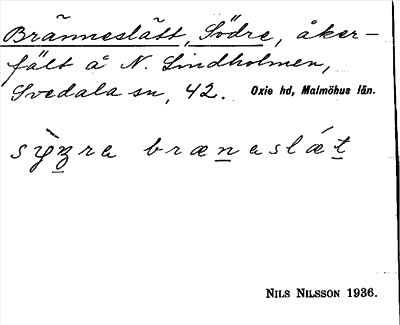 Bränneslätt, Södre, åker-
fält å N. Lindholmen,
Svedala sn, 42. Oxie hd, Malmöhus län.
bræneslæt
NILS NILSSON 1936.